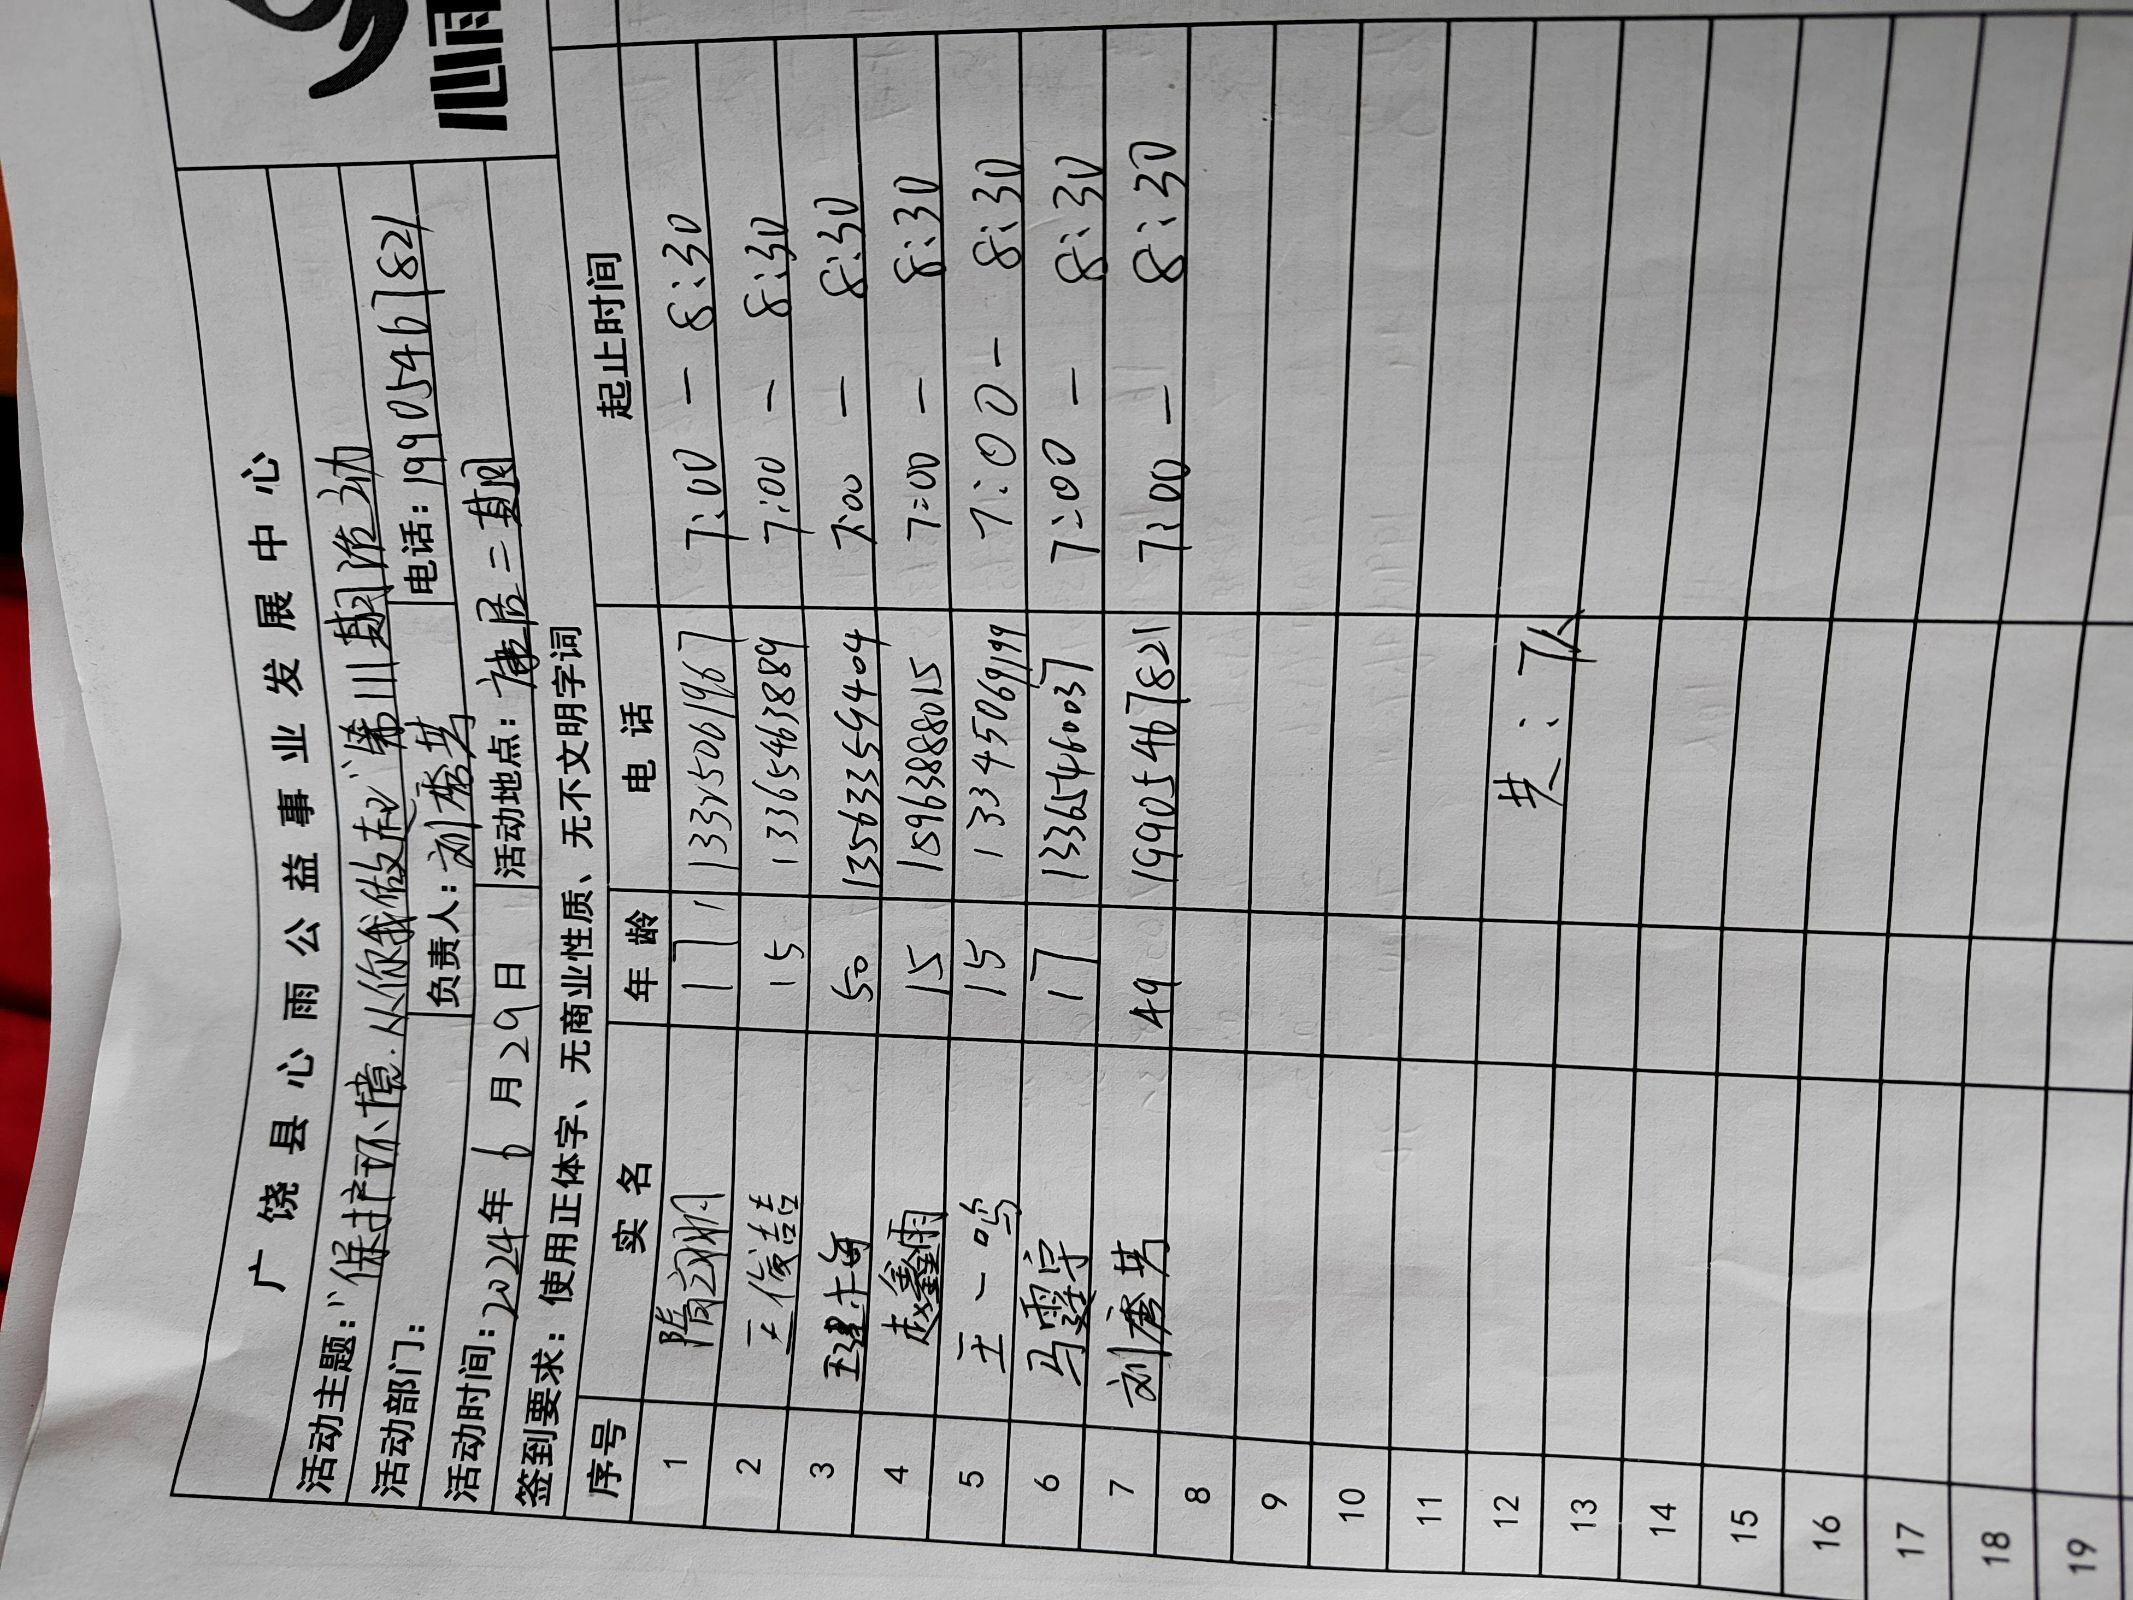 心雨
广饶县心雨公益事业发展中心
活动主题:"保护环境.从你我做起"第111期活动
活动部门: 负责人:刘春英 电话:19905467821
活动时间:2024年6月29日 活动地点:康居二期
签到要求:使用正体字、无商业性质、无不文明字词
序号 实名 年龄 电话 起止时间
1 17 13325061967 7:00 — 8:30
2 王俊喆 15 13365463889 7:00 — 8:30
3 50 13563359404 7:00 — 8:30
4 赵鑫雨 15 18963888015 7:00 — 8:30
5 王一鸣 15 13345069199 7:00 — 8:30
6 马霆宇 17 13365460037 7:00 — 8:30
7 刘春英 49 19905467821 7:00 — 8:30
8
9
10
11
12 共:7人
13
14
15
16
17
18
19